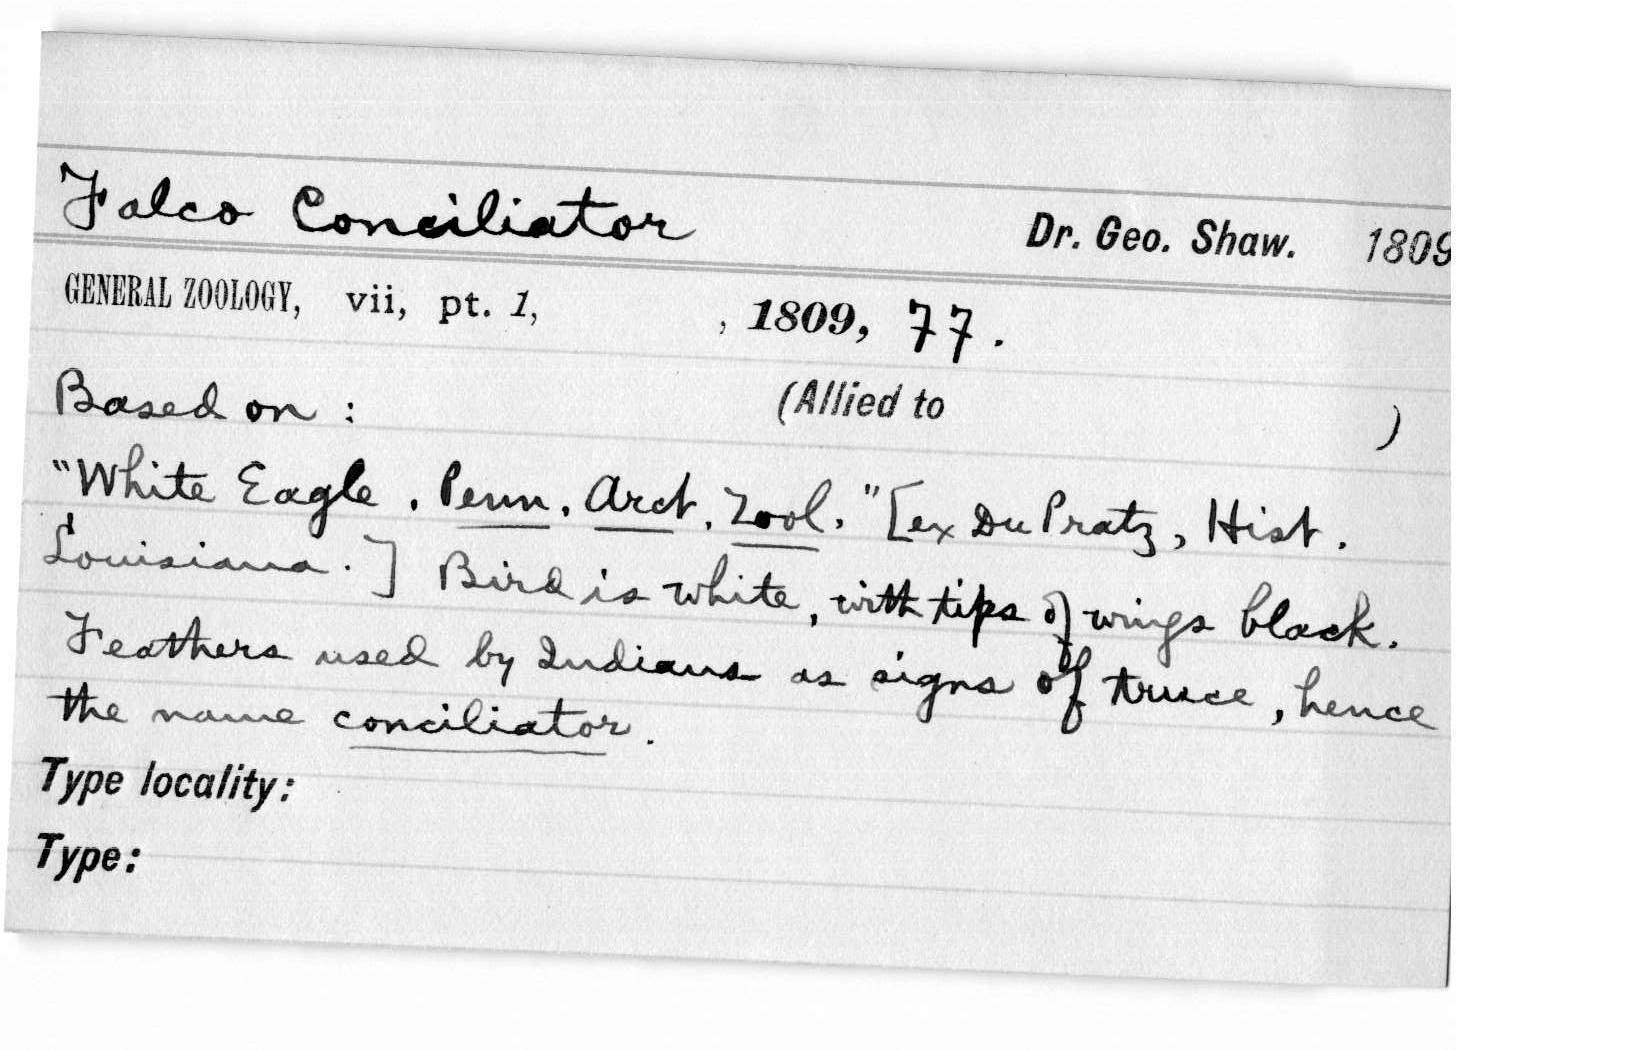 Falco Conciliator Dr. Geo. Shaw. 1809
GENERAL ZOOLOGY, vii, pt. 1, , 1809, 77.
Based on : (Allied to )
"White Eagle . Penn. Arct. Zool." [ex Du Pratz, Hist.
Louisiana.] Bird is white, with tips of wings black.
Feathers used by Indians as signs of truce, hence
the name conciliator.
Type locality:
Type: